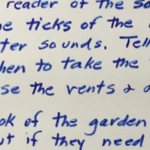 reader of the so
e ticks of the
ter sounds. Tell
hen to take the
se the vents &
ok of the garden
ut if they need